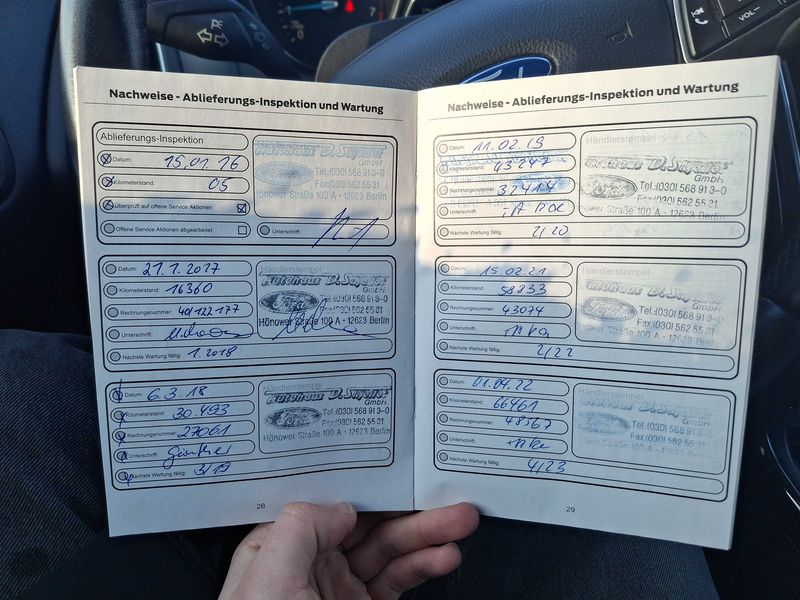 VOL-
Nachweise - Ablieferungs-Inspektion und Wartung
Ablieferungs-Inspektion
Datum: 15.01.16
Kilometerstand: 05
Überprüft auf offene Service Aktionen:
Offene Service Aktionen abgearbeitet:
Autohaus
GmbH
Ford
Tel.(030) 568 91 3-0
Fax:(030) 562 55 31
Hönower Straße 100 A - 12623 Berlin
Unterschrift:
Datum: 27.1.2017
Kilometerstand: 16360
Rechnungsnummer: 40/122 177
Unterschrift:
Nächste Wartung fällig: 1.2018
Händlerstempel
Autohaus
GmbH
Ford
Tel.(030) 568 91 3-0
Fax:(030) 562 55 31
Hönower Straße 100 A - 12623 Berlin
Datum: 6.3.18
Kilometerstand: 30.493
Rechnungsnummer: 27061
Unterschrift: Günther
Nächste Wartung fällig: 3/19
Händlerstempel
Autohaus
GmbH
Ford
Tel.(030) 568 91 3-0
Fax:(030) 562 55 31
Hönower Straße 100 A - 12623 Berlin
28
Nachweise - Ablieferungs-Inspektion und Wartung
Datum: 11.02.19
Kilometerstand: 43247
Rechnungsnummer: 32414
Unterschrift:
Nächste Wartung fällig: 2/20
Händlerstempel
Autohaus
GmbH
Ford
Tel.(030) 568 91 3-0
Fax:(030) 562 55 31
Hönower Straße 100 A - 12623 Berlin
Datum: 15.02.21
Kilometerstand: 58833
Rechnungsnummer: 43074
Unterschrift:
Nächste Wartung fällig: 2/22
Händlerstempel
Autohaus
GmbH
Ford
Tel.(030) 568 91 3-0
Fax:(030) 562 55 31
Hönower Straße 100 A - 12623 Berlin
Datum: 01.04.22
Kilometerstand: 66461
Rechnungsnummer: 48567
Unterschrift:
Nächste Wartung fällig: 4/23
Händlerstempel
GmbH
Ford
Tel.(030) 568 91 3-0
Fax:(030) 562 55 31
Hönower Straße 100 A - 12623 Berlin
29